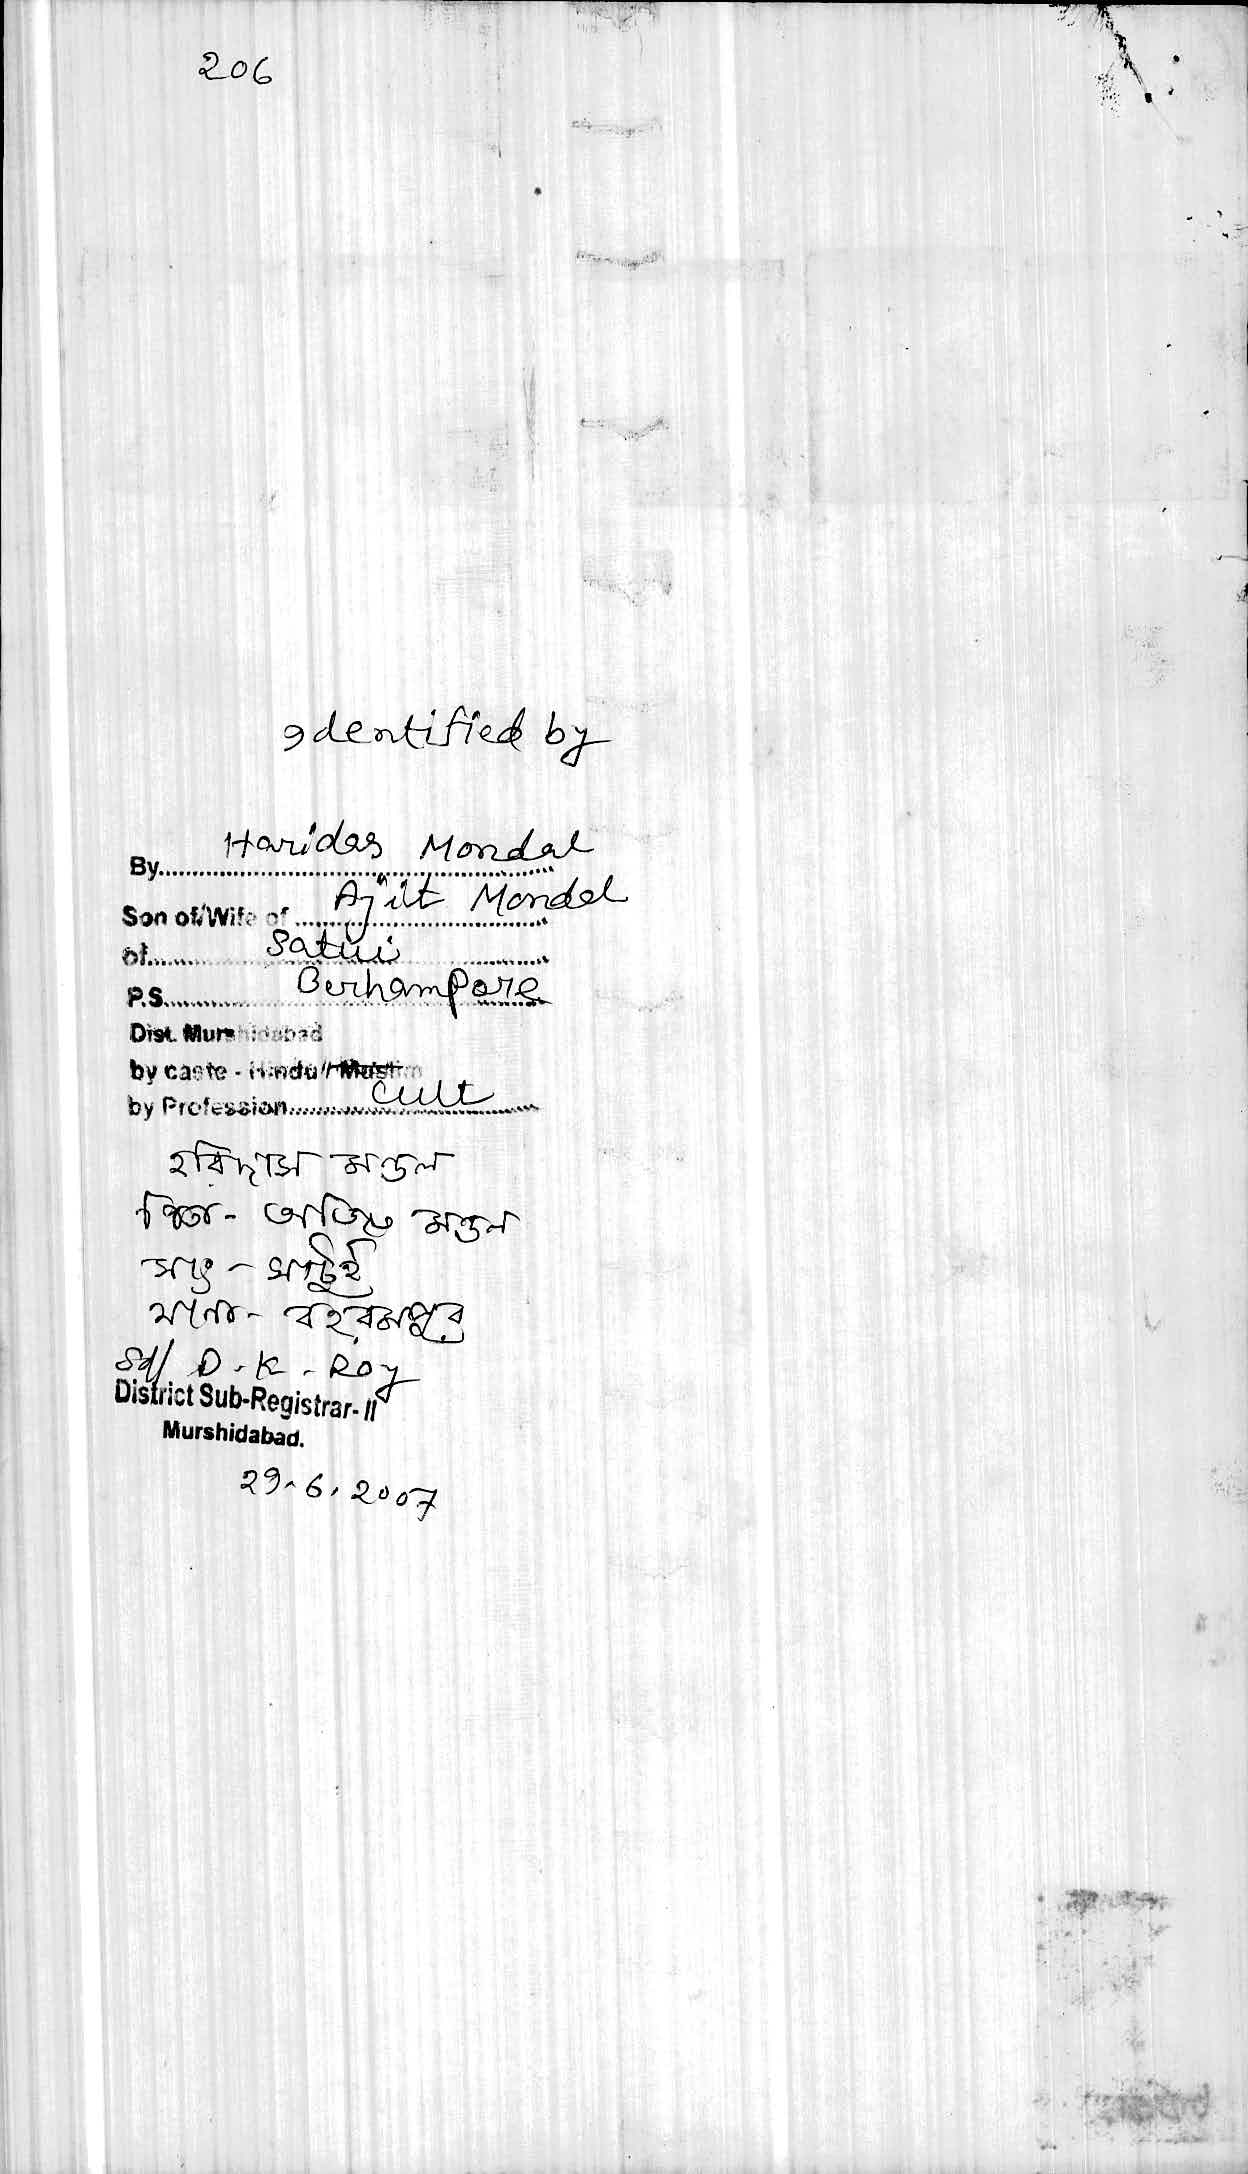 206
Identified by
By........ Haridas Mondal
Son of/Wife of ........ Ajit Mondal
of........ Satui ........
P.S........ Berhampore
Dist. Murshidabad
by caste - Hindu / Muslim
by Profession........ Cult
হরিদাস মন্ডল
পিতা - অজিত মন্ডল
সাং - সাটুই
থানা - বহরমপুর
Sd/ D. K. Roy
District Sub-Registrar- II
Murshidabad.
29.6.2007